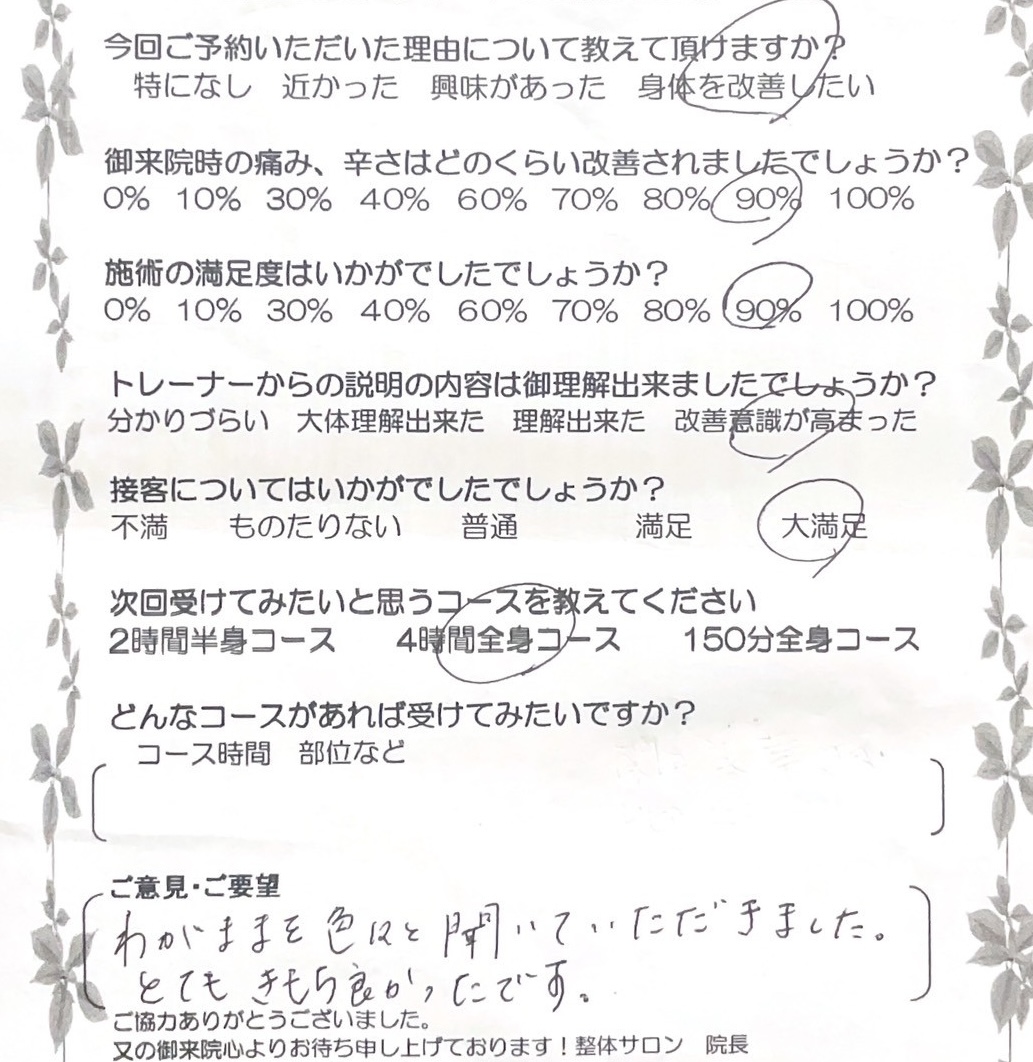 今回ご予約いただいた理由について教えて頂けますか？
特になし 近かった 興味があった 身体を改善したい
御来院時の痛み、辛さはどのくらい改善されましたでしょうか？
0% 10% 30% 40% 60% 70% 80% 90% 100%
施術の満足度はいかがでしたでしょうか？
0% 10% 30% 40% 60% 70% 80% 90% 100%
トレーナーからの説明の内容は御理解出来ましたでしょうか？
分かりづらい 大体理解出来た 理解出来た 改善意識が高まった
接客についてはいかがでしたでしょうか？
不満 ものたりない 普通 満足 大満足
次回受けてみたいと思うコースを教えてください
2時間半身コース 4時間全身コース 150分全身コース
どんなコースがあれば受けてみたいですか？
コース時間 部位など
ご意見・ご要望
わがままを色はと聞いていただきました。
とてもきもち良かったです。
ご協力ありがとうございました。
又の御来院心よりお待ち申し上げております！整体サロン 院長